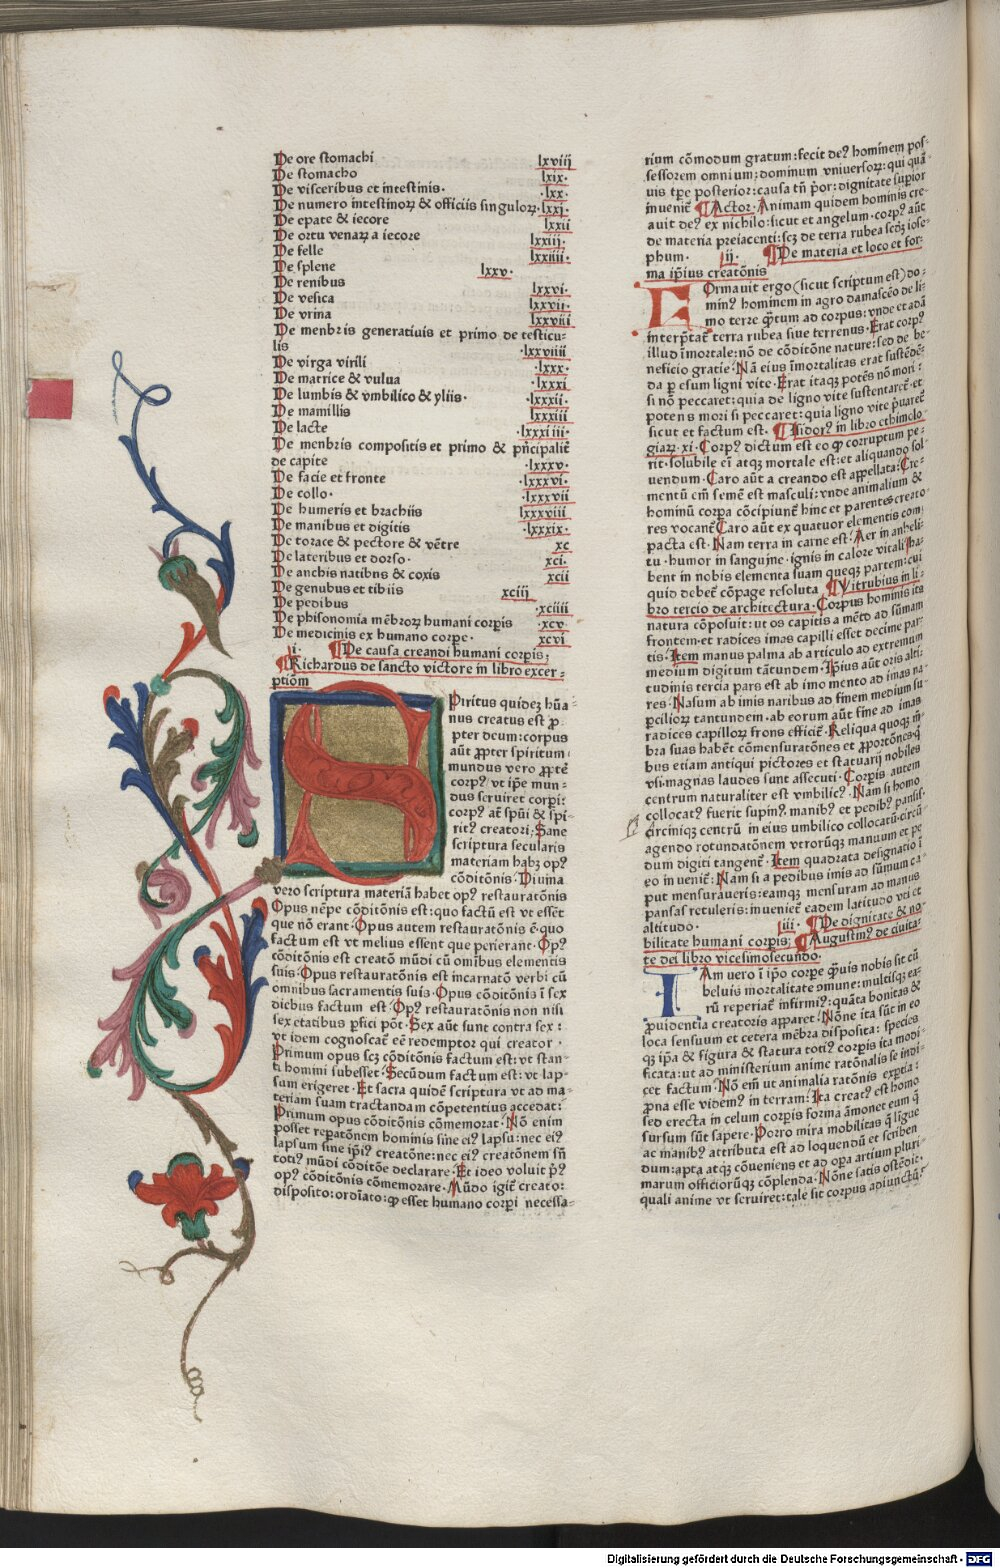 De ore stomachi lxviij
De stomacho lxix·
De visceribus et intestinis· lxx·
De numero intestinoꝝ & officiis singuloꝝ· lxxj·
De epate & iecore lxxij
De ortu venaꝝ a iecore lxxiij·
De felle lxxiiii·
De splene lxxv·
De renibus lxxvi·
De vesica lxxvii·
De vrina lxxviii
De menbris generatiuis et primo de testicu-
lis ·lxxviiii
De virga virili lxxx·
De matrice & vulua lxxxi
De lumbis & vmbilico & yliis· ·lxxxii·
De mamillis lxxxiii
De lacte ·lxxxiiii·
De menbris compositis et primo & pͥncipalit̄
de capite ·lxxxv·
De facie et fronte ·lxxxvi·
De collo· ·lxxxvii
De humeris et brachiis lxxxviii
De manibus et digitis ·lxxxix·
De torace & pectore & vētre xc
De lateribus et dorso· xci·
De anchis natibns & coxis xcii
De genubus et tibiis xciij
De pedibus ·xciiii
De phisonomia mēbroꝝ humani corp̄is ·xcv·
De medicinis ex humano corpe· xcvi
·i· ¶De causa creandi humani corp̄is;
¶Richardus de sancto victore in libro excer-
ptiōm
SPiritus quidez hūa-
nus creatus est p̱-
pter deum: corpus
aūt ꝓpter spiritum·
mundus vero ꝓpt̄
corpꝰ vt ip̄e mun-
dus seruiret corpi:
corpꝰ at̄ sp̄ui & spi-
ritꝰ creatori; Sane
scriptura secularis
materiam habꝫ opꝰ
cōditōnis· Diuina
vero scriptura materiā habet opꝰ restauratōnis
Opus nēpe cōditōnis est: quo factū est vt essēt
que nō erant· Opus autem restauratōnis ē· quo
factum est vt melius essent que perierant· Opꝰ
cōditōnis est creatō mūdi cū omībus elementis
suis· Opus restauratōnis est incarnatō verbi cū
omnibus sacramentis suis· Opus cōditōnis ī sex
diebus factum est· Opꝰ restauratōnis non nisi
sex etatibus ꝑfici pōt· Sex aūt sunt contra sex:
vt idem cognoscat̄ eē redemptor qui creator·
Primum opus scꝫ cōditōnis factum est: vt stan-
ti homini subesset· Secūdum factum est: vt lap-
sum erigeret· Et sacra quidē scriptura vt ad ma-
teriam suam tractandam cōpetentius accedat:
Primum opus cōditōnis cōmemorat· Nō enim
posset reparatōnem hominis sine eiꝰ lapsu: nec eiꝰ
lapsum sine ip̄iꝰ creatōne: nec eiꝰ creatōnem sū
totiꝰ mūdi cōditōe declarare· Et ideo voluit pͥꝰ
opꝰ cōditōnis cōmemorare· Mūdo igit̄ creato:
disposito: ordīato: ꝙ esset humano corpi necessa-
rium cōmodum gratum: fecit deꝰ hominem pos-
sessorem omnium; dominum vniuersoꝝ: qui quā-
uis tꝑe posterior: causa tn̄ pͥor: dignitate suꝑior
inuenit̄ ¶Actor· Animam quidem hominis cre-
auit deꝰ ex nichilo: sicut et angelum· corpꝰ aūt
de materia preiacenti: scꝫ de terra rubea scdꝫ iose-
phum· ·ij· ¶De materia et loco et for-
ma ip̄ius creatōnis
FOrmauit ergo (sicut scriptum est) do-
minꝰ hominem in agro damascēo de li-
mo terre qͣtum ad corpus: vnde et adā
interp̄tat̄ terra rubea siue terrenus· Erat corpꝰ
illud īmortale: nō de cōditōne nature: sed de be-
neficio gratie· Nā eius īmortalitas erat sustēdē-
da ꝑ esum ligni vite· Erat itaqꝫ potēs nō mori:
si nō peccaret: quia de ligno vite sustentaret̄· et
potens mori si peccaret: quia ligno vite pͥuaret̄
sicut et factum est· ¶Isidorꝰ in libro ethimolo-
giaꝝ· xi· Corpꝰ dictum est eo ꝙ corruptum pe-
rit· solubile ei̅ atqꝫ mortale est: et aliquando sol-
uendum· Caro aūt a creando est appellata: Cre-
mentū em̄ semē est masculi: vnde animalium &
hominū corpa cōcipiunt̄ hinc et parentes creato-
res vocant̄ Caro aūt ex quatuor elementis com
pacta est· Nam terra in carne est: Aer in anheli-
tu· humor in sanguine· ignis in calore vitali Ha-
bent in nobis elementa suam queqꝫ partem: cui
quid debet̄ cōpage resoluta ¶Vitrubius in li-
bro tercio de architectura· Corpus hominis ita
natura cōposuit: ut os capitis a mēto ad sūmam
frontem· et radices imas capilli esset decime par-
tis· Item manus palma ab articulo ad extremum
medium digitum tātundem· Ip̄ius aūt oris alti-
tudinis tercia pars est ab imo mento ad imas na-
res· Nasum ab imis naribus ad finem medium su-
ꝑcilioꝝ tantundem· ab eorum aūt fine ad imas
radices capilloꝝ frons efficit̄· Reliqua quoqꝫ m̄-
bra suas habēt cōmensuratōnes et ꝓportōnes· qͥ-
bus etiam antiqui pictores et statuarij nobiles
vsi· magnas laudes sunt assecuti· Corp̄is autem
centrum naturaliter est vmbilicꝰ· Nam si homo
collocatꝰ fuerit supinꝰ· manibꝰ et pedibꝰ pansis·
circiniqꝫ centrū in eius umbilico collocatū· circū
agendo rotundatōnem vtrorūqꝫ manuum et pe
dum digiti tangent̄· Item quadrata designatio ī
eo inuenit̄: Nam si a pedibus imis ad sūmum ca-
put mensuraueris: eamqꝫ mensuram ad manus
pansas retuleris: inueniet̄ eadem latitudo vel et
altitudo· ·iii· ¶De dignitate & no-
bilitate humani corp̄is; ¶Augustinꝰ de ciuita-
te dei libro vicesimosecundo·
IAm vero ī ip̄o corpe qͣuis nobis sit cū
beluis mortalitate ꝯmune: multisqꝫ ea-
rū reperiat̄ infirmiꝰ: quāta bonitas &
ꝓuidentia creatoris apparet· Nōne ita sūt in eo
loca sensuum et cetera mēbra disposita: species
qꝫ ip̄a & figura & statura totiꝰ corp̄is ita modi-
ficata: ut ad ministerium anime ratōnalis se indi-
cet factum· Nō em̄ ut animalia ratōnis exp̄tia:
ꝓna esse videmꝰ in terram: Ita creatꝰ est homo
sed erecta in celum corp̄is forma āmonet eum q̄
sursum sūt sapere· Porro mira mobilitas q̄ līgue
ac manibꝰ attributa est ad loquendū et scriben
dum: apta atqꝫ cōueniens et ad opa artium pluri-
marum officiorūqꝫ cōplenda· Nōne satis ostēdit·
quali anime vt seruiret: tale sit corpus adiunctūꝰ
Digitalisierung gefördert durch die Deutsche Forschungsgemeinschaft · DFG